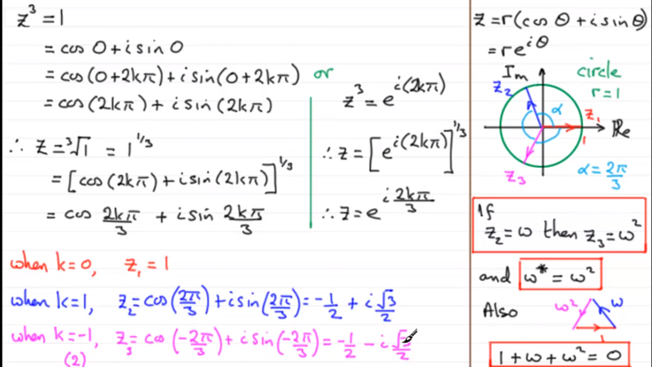 z³ = 1
= cos 0 + i sin 0
= cos(0+2kπ) + i sin(0+2kπ) or
= cos(2kπ) + i sin(2kπ)
∴ z = ³√1 = 1^{1/3}
= [cos(2kπ) + i sin(2kπ)]^{1/3}
= cos 2kπ/3 + i sin 2kπ/3
z³ = e^{i(2kπ)}
∴ z = [e^{i(2kπ)}]^{1/3}
∴ z = e^{i 2kπ/3}
when k=0, z₁ = 1
when k=1, z₂ = cos(2π/3) + i sin(2π/3) = -1/2 + i √3/2
when k=-1, z₃ = cos(-2π/3) + i sin(-2π/3) = -1/2 - i √3/2
(2)
z = r(cos θ + i sin θ)
= re^{iθ}
Im
circle
r = 1
z₂
α
z₁
Re
1
z₃
α = 2π/3
If
z₂ = ω then z₃ = ω²
and ω* = ω²
Also
ω² ω
1
1 + ω + ω² = 0